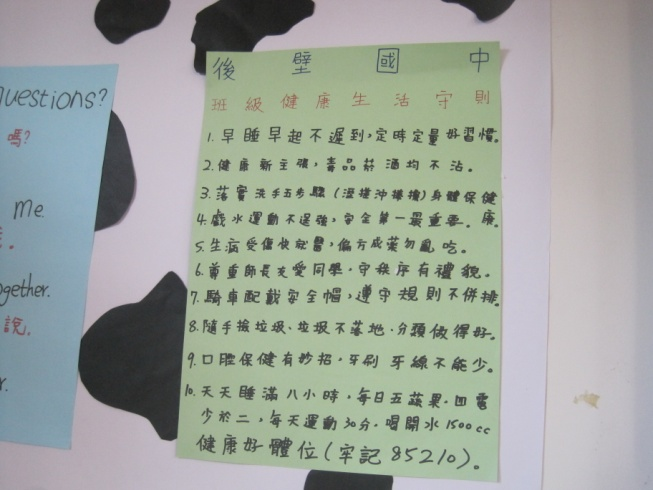 後壁國中
班級健康生活守則
1.早睡早起不遲到,定時定量好習慣。
2.健康新主張,毒品菸酒均不沾。
3.落實洗手五步驟(濕搓沖捧擦)身體保健
康。
4.戲水運動不逞強,安全第一最重要。
5.生病受傷快就醫,偏方成藥勿亂吃。
6.尊重師長友愛同學,守秩序有禮貌。
7.騎車配戴安全帽,遵守規則不併排。
8.隨手撿垃圾、垃圾不落地、分類做得好。
9.口腔保健有妙招,牙刷牙線不能少。
10.天天睡滿八小時,每日五蔬果.四電
少於二,每天運動30分.喝開水1500cc
健康好體位(牢記85210)。
Questions?
嗎?
me
。
together.
說。
r.